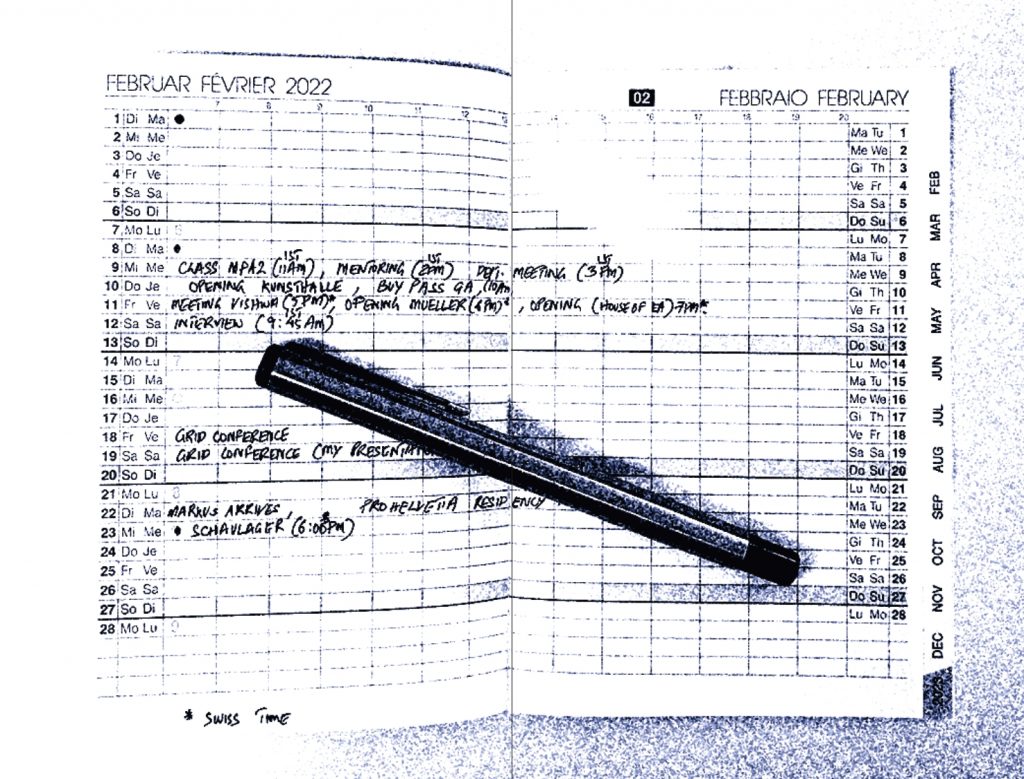 FEBRUAR FÉVRIER 2022
02 FEBBRAIO FEBRUARY
7 8 9 10 11 12 13 14 15 16 17 18 19 20
1 Di Ma ● Ma Tu 1
2 Mi Me Me We 2
3 Do Je Gi Th 3
4 Fr Ve Ve Fr 4
5 Sa Sa Sa Sa 5
6 So Di Do Su 6
7 Mo Lu Lu Mo 7
8 Di Ma ● Ma Tu 8
IST IST IST
9 Mi Me CLASS MPA2 (11AM), MENTORING (2PM) MEETING (3PM) Me We 9
10 Do Je OPENING KUNSTHALLE, BUY PASS GA, (10AM Gi Th 10
11 Fr Ve MEETING VISHWA (5PM)*, OPENING MUELLER (6PM)*, OPENING (HOUSE OF EA) 7PM* Ve Fr 11
IST
12 Sa Sa INTERVIEW (9:45AM) Sa Sa 12
13 So Di Do Su 13
14 Mo Lu 7 Lu Mo 14
15 Di Ma Ma Tu 15
16 Mi Me Me We 16
17 Do Je Gi Th 17
18 Fr Ve GRID CONFERENCE Ve Fr 18
19 Sa Sa GRID CONFERENCE (MY PRESENTATIO Sa Sa 19
20 So Di Do Su 20
21 Mo Lu 8 Lu Mo 21
22 Di Ma MARKUS ARRIVES, PROHELVETIA RESIDENCY Ma Tu 22
23 Mi Me ● SCHAULAGER (6:00PM)* Me We 23
24 Do Je Gi Th 24
25 Fr Ve Ve Fr 25
26 Sa Sa Sa Sa 26
27 So Di Do Su 27
28 Mo Lu 9 Lu Mo 28
* SWISS TIME
FEB
MAR
APR
MAY
JUN
JUL
AUG
SEP
OCT
NOV
DEC